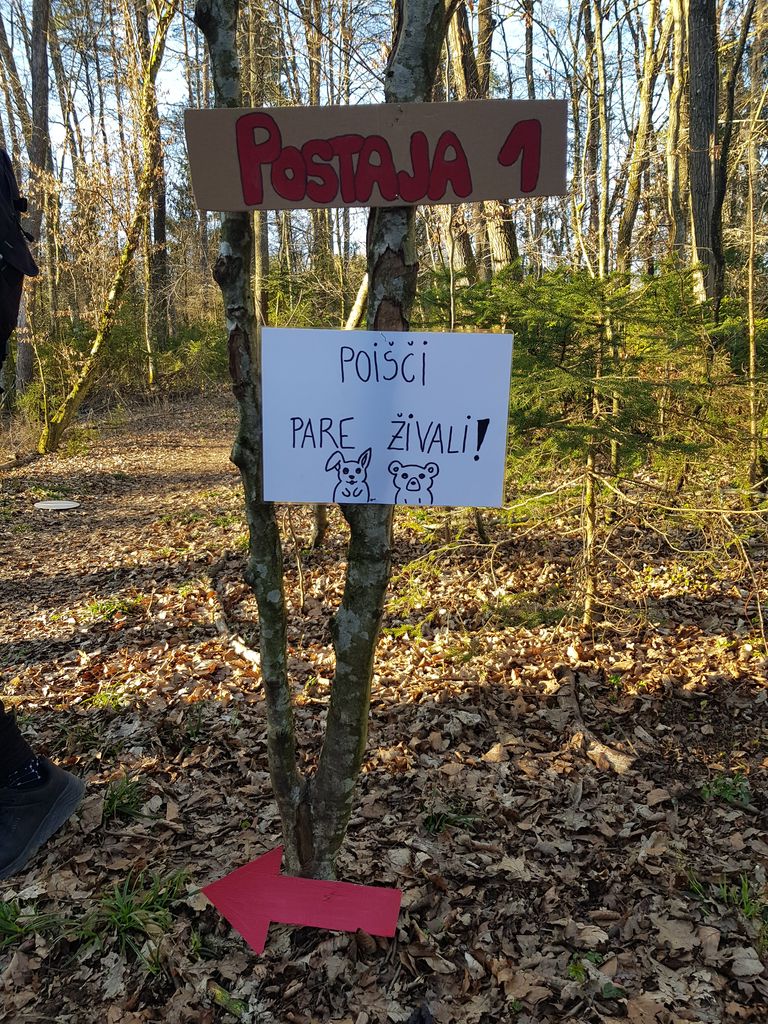 POSTAJA 1
POIŠČI
PARE ŽIVALI!